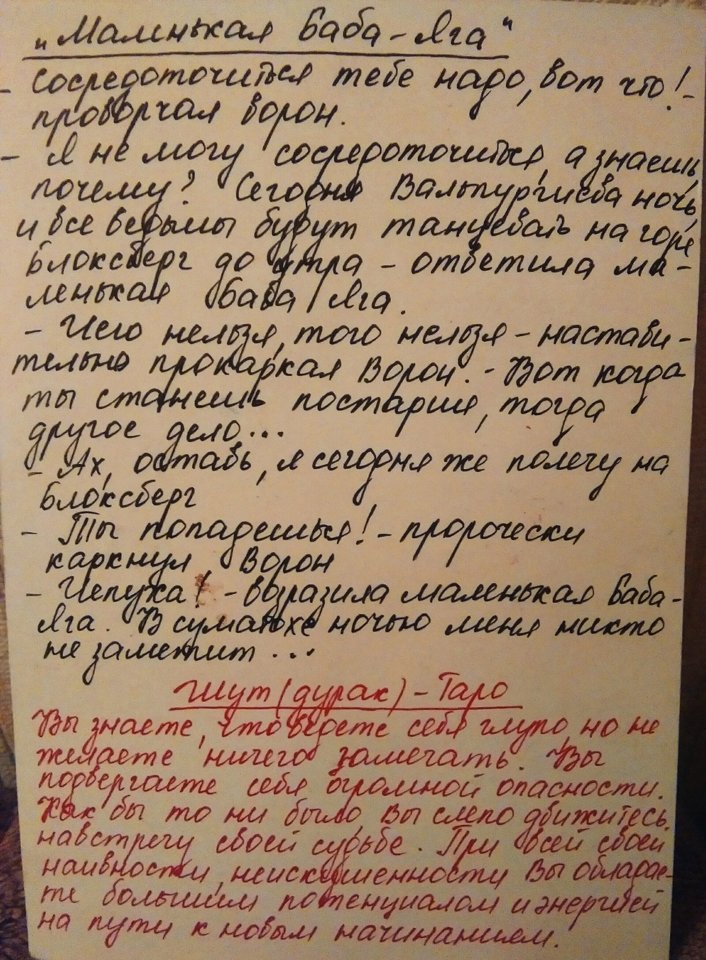 „Маленькая Баба-Яга"
- Сосредоточиться тебе надо, вот что! -
проворчал ворон.
- Я не могу сосредоточиться, а знаешь,
почему? Сегодня Вальпургиева ночь,
и все ведьмы будут танцевать на горе
Блоксберг до утра - ответила ма-
ленькая Баба Яга.
- Чего нельзя, того нельзя - настави-
тельно прокаркал Ворон. - Вот когда
ты станешь постарше, тогда
другое дело...
- Ах, оставь, я сегодня же полечу на
Блоксберг
- Ты попадешься! - пророчески
каркнул Ворон
- Чепуха! - возразила маленькая Баба-
Яга. В суматохе ночью меня никто
не заметит...
Шут (дурак) - Таро
Вы знаете, что ведете себя глупо, но не
желаете ничего замечать. Вы
подвергаете себя огромной опасности.
Как бы то ни было, Вы слепо движитесь
навстречу своей судьбе. При всей своей
наивности, неискушенности Вы облада-
ете большим потенциалом и энергией
на пути к новым начинаниям.